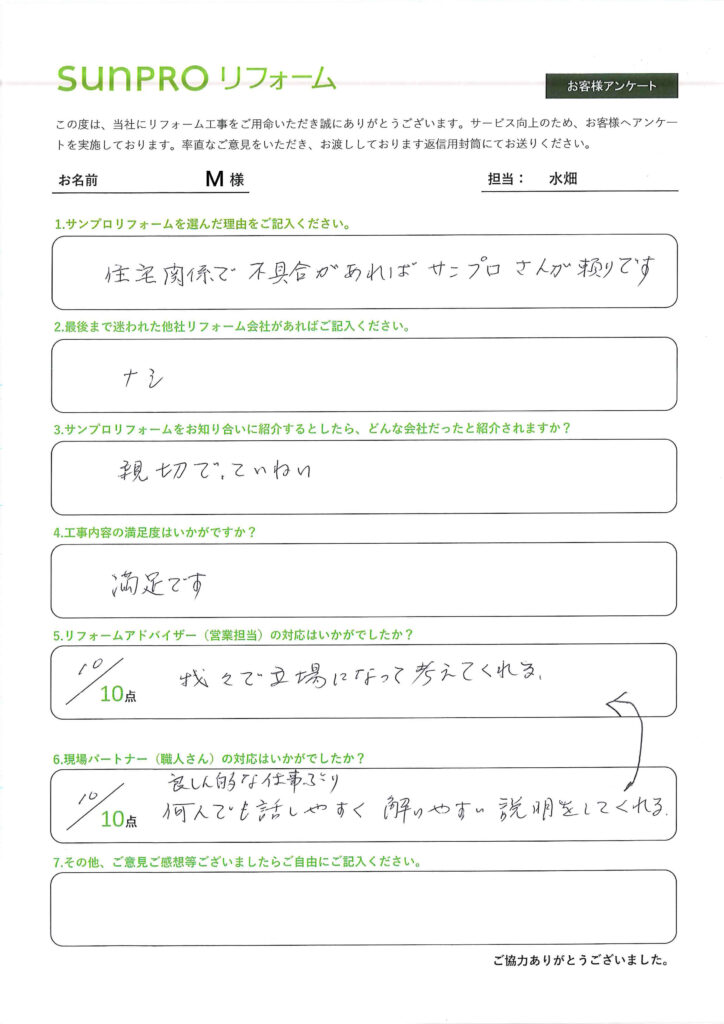 sunPRO リフォーム
お客様アンケート
この度は、当社にリフォーム工事をご用命いただき誠にありがとうございます。サービス向上のため、お客様へアンケー
トを実施しております。率直なご意見をいただき、お渡ししております返信用封筒にてお送りください。
お名前 M 様 担当： 水畑
1.サンプロリフォームを選んだ理由をご記入ください。
住宅関係で 不具合があれば サンプロ さんが 頼りです
2.最後まで迷われた他社リフォーム会社があればご記入ください。
ナシ
3.サンプロリフォームをお知り合いに紹介するとしたら、どんな会社だったと紹介されますか？
親切で、ていねい
4.工事内容の満足度はいかがですか？
満足です
5.リフォームアドバイザー（営業担当）の対応はいかがでしたか？
10/10点 我々で立場になって考えてくれる、
6.現場パートナー（職人さん）の対応はいかがでしたか？
良しん的な仕事ぶり
10/10点 何んでも話しやすく 解りやすい 説明をしてくれる.
7.その他、ご意見ご感想等ございましたらご自由にご記入ください。
ご協力ありがとうございました。